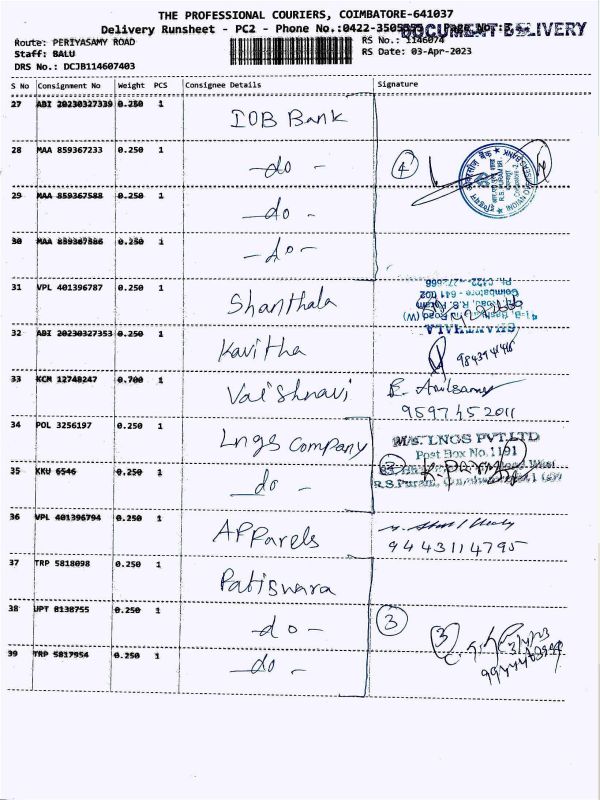 THE PROFESSIONAL COURIERS, COIMBATORE-641037
Delivery Runsheet - PC2 - Phone No.:0422-3505
DOCUMENT DELIVERY
Route: PERIYASAMY ROAD
RS No.: 1146074
Staff: BALU
RS Date: 03-Apr-2023
DRS No.: DCJB114607403
S No Consignment No Weight PCS Consignee Details Signature
27 ABI 20230327339 0.250 1 IOB Bank
28 MAA 859367233 0.250 1 -do- 4
29 MAA 859367588 0.250 1 -do-
30 MAA 859367586 0.250 1 -do-
31 VPL 401396787 0.250 1 Shanthala
SHANTHALA
32 ABI 20230327353 0.250 1 Kavitha
33 KCM 12748247 0.700 1 Vaishnavi
9597452011
34 POL 3256197 0.250 1 Lngs Company
M/S. LNGS PVT.LTD
Post Box No.1191
35 KKU 6546 0.250 1 do -
R.S.Puram,
36 VPL 401396794 0.250 1 APParels
9443114795
37 TRP 5818098 0.250 1 Patiswara
38 UPT 8138755 0.250 1 -do- 3
3
39 TRP 5817954 0.250 1 -do-